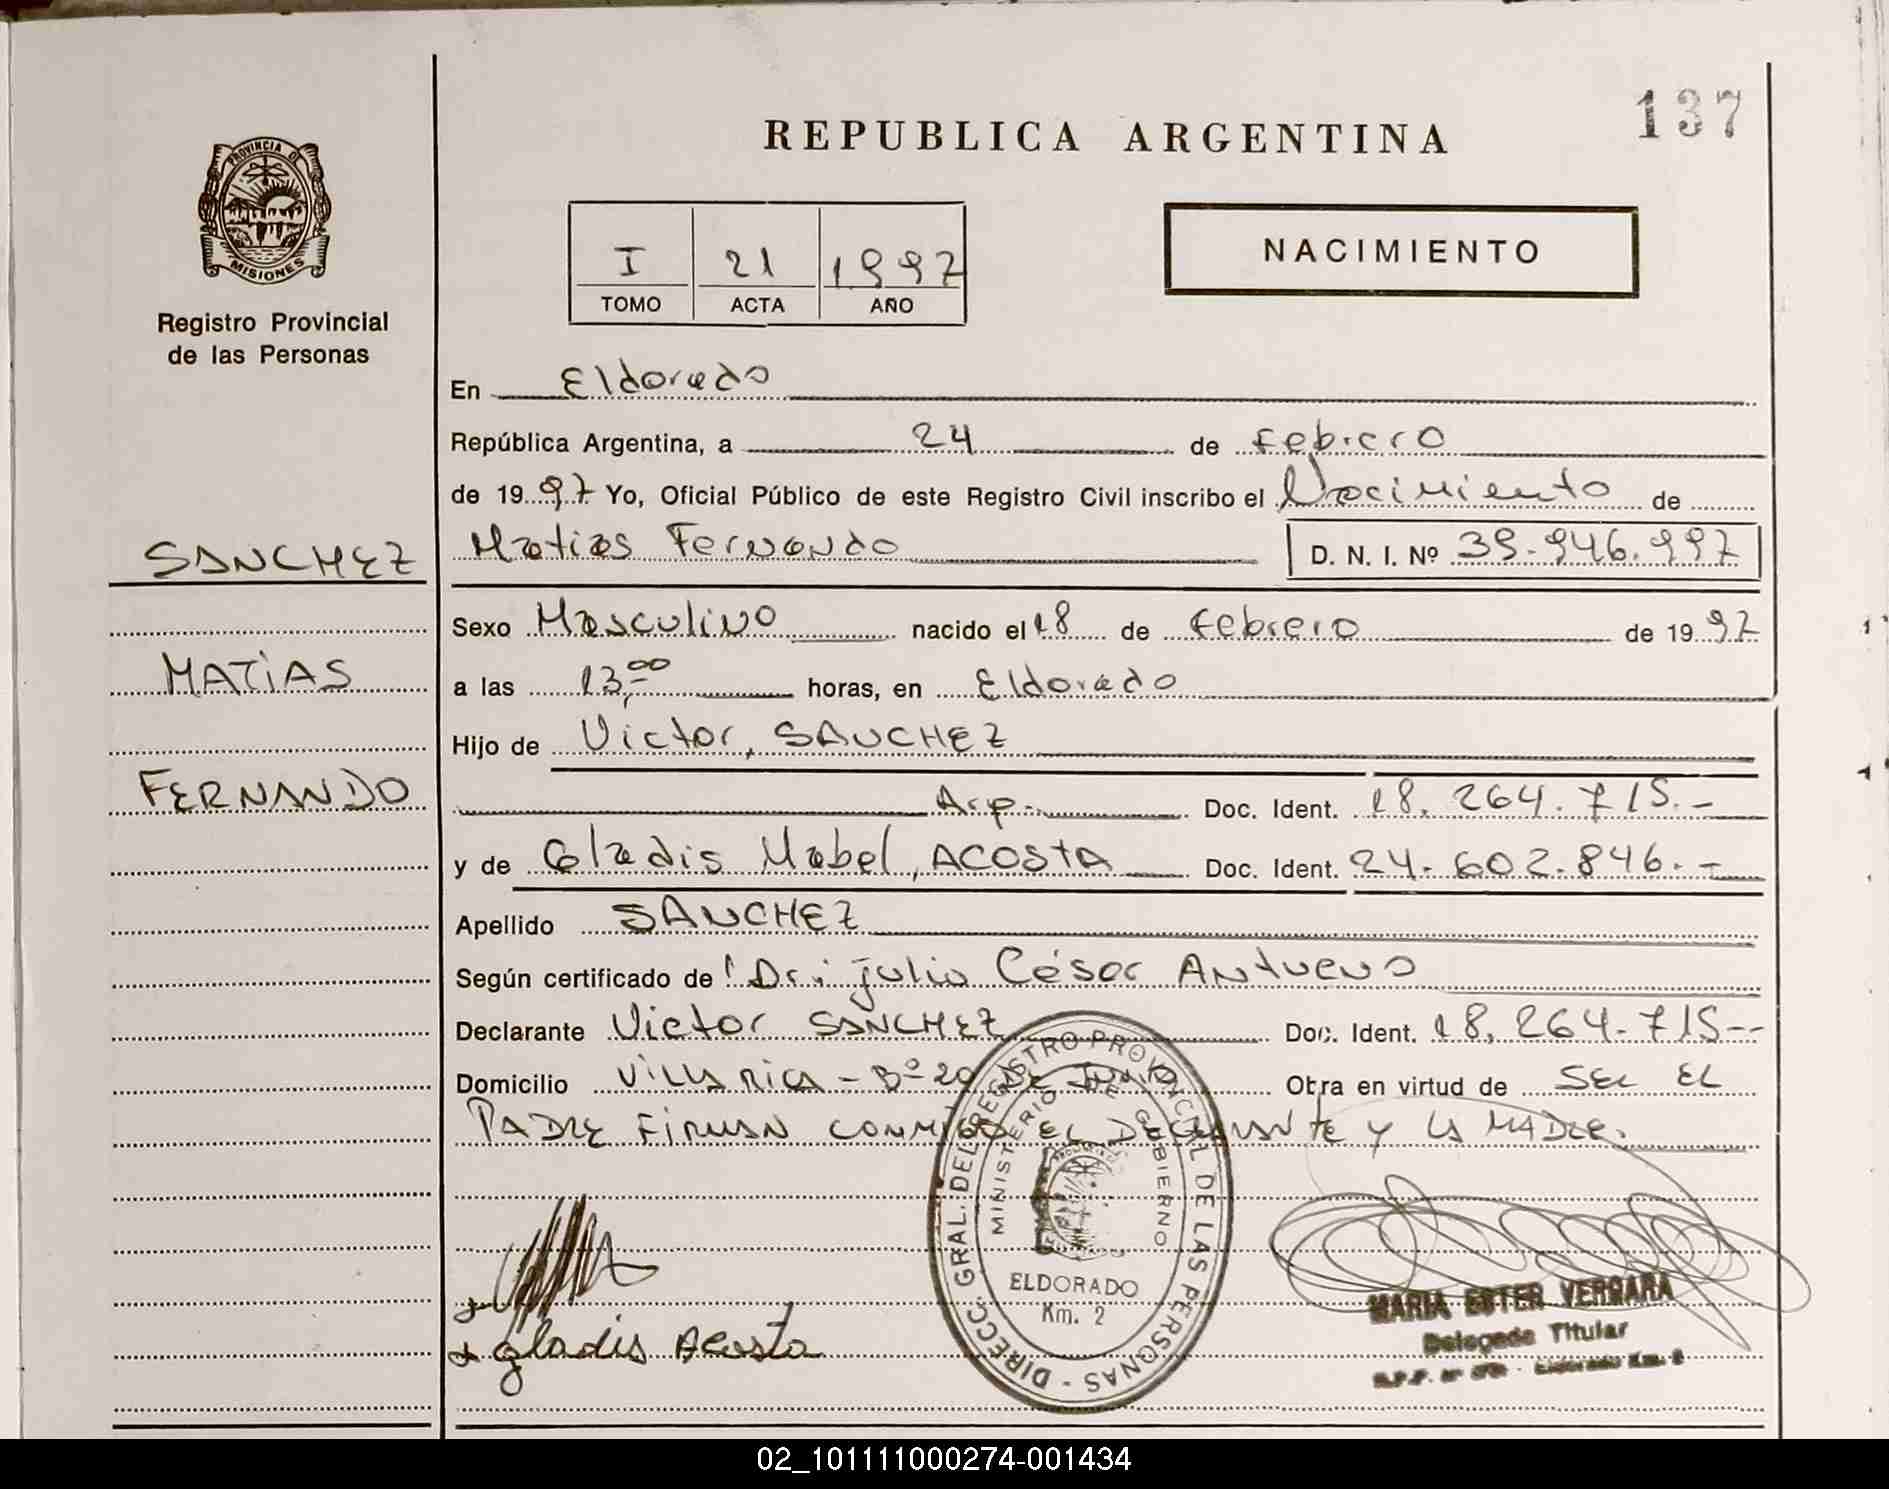 137
REPUBLICA ARGENTINA
PROVINCIA DE
MISIONES
Registro Provincial
de las Personas
I 21 1997
TOMO ACTA AÑO
NACIMIENTO
En Eldorado
República Argentina, a 24 de Febrero
de 1997 Yo, Oficial Público de este Registro Civil inscribo el Nacimiento de
SANCHEZ
Matias Fernando D. N. I. Nº 39.946.997
Sexo Masculino nacido el 18 de Febrero de 1997
MATÍAS
a las 13,00 horas, en Eldorado
Hijo de Victor, SANCHEZ
FERNANDO
Arg. Doc. Ident. 18.264.715.-
y de Gladis Mabel, ACOSTA Doc. Ident. 24.602.846.-
Apellido SANCHEZ
Según certificado de Dr. Julio César Antueno
Declarante Victor SANCHEZ Doc. Ident. 18.264.715--
Domicilio VILLA RICA - Bº 20 DE JUNIO Obra en virtud de SER EL
PADRE FIRMAN CONMIGO EL DECLARANTE Y LA MADRE.
DIRECC. GRAL. DEL REGISTRO PROVINCIAL DE LAS PERSONAS -
MINISTERIO DE GOBIERNO
ELDORADO
Km. 2
gladis Acosta
MARIA ESTER VERGARA
Delegada Titular
Eldorado Km. 2
02_101111000274-001434